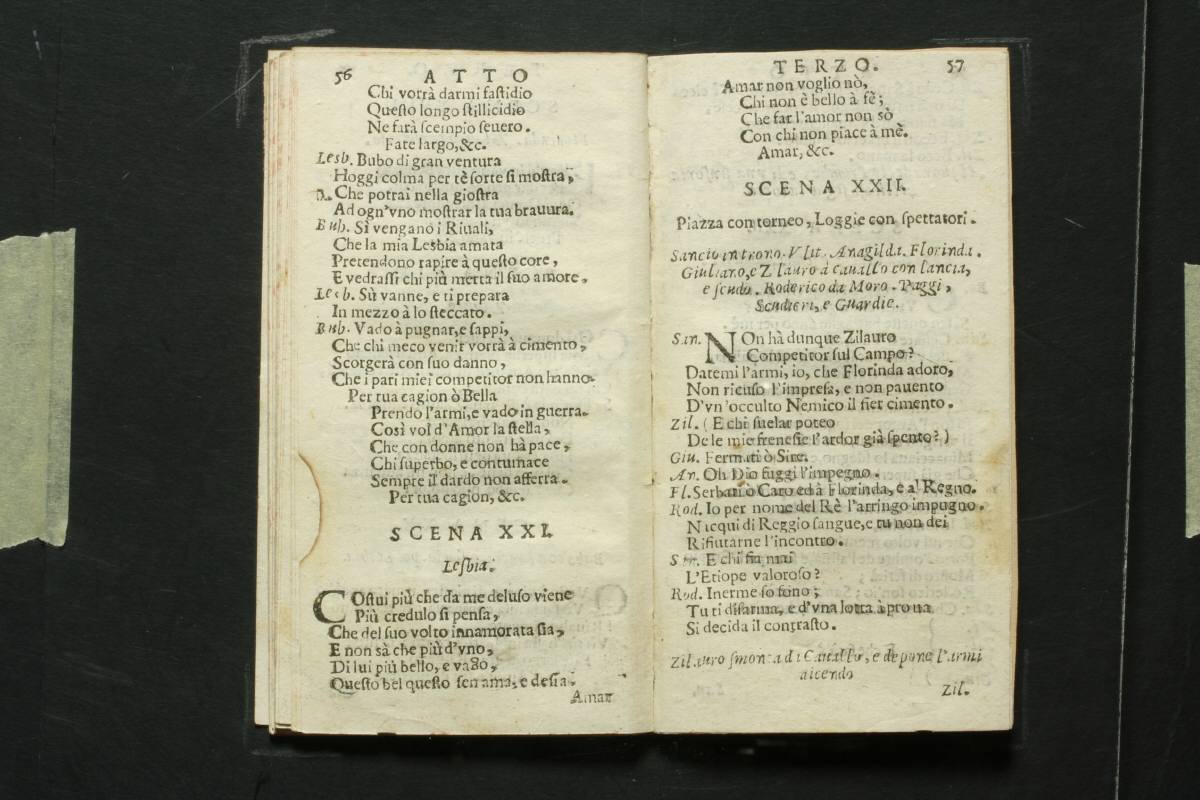 56 ATTO
Chi vorrà darmi fastidio
Questo longo stillicidio
Ne farà scempio seuero.
Fate largo, &c.
Lesb. Bubo di gran ventura
Hoggi colma per tè sorte si mostra,
Che potrai nella giostra
Ad ogn'vno mostrar la tua brauura.
Bub. Sì vengano i Riuali,
Che la mia Lesbia amata
Pretendono rapire à questo core,
E vedrassi chi più merta il suo amore,
Lesb. Sù vanne, e ti prepara
In mezzo à lo steccato.
Bub. Vado à pugnar, e sappi,
Che chi meco venir vorrà à cimento,
Scorgerà con suo danno,
Che i pari miei competitor non hanno.
Per tua cagion ò Bella
Prendo l'armi, e vado in guerra.
Così vol d'Amor la stella,
Che con donne non hà pace,
Chi superbo, e contumace
Sempre il dardo non afferra.
Per tua cagion, &c.
SCENA XXI.
Lesbia.
COstui più che da me deluso viene
Più credulo si pensa,
Che del suo volto innamorata sia,
E non sà che più d'vno,
Di lui più bello, e vago,
Questo bel questo sen ama, e desia.
Amar
TERZO. 57
Amar non voglio nò,
Chi non è bello à fè;
Che far l'amor non sò
Con chi non piace à mè.
Amar, &c.
SCENA XXII.
Piazza con torneo, Loggie con spettatori.
Sancio in trono. Vlit. Anagilda. Florinda.
Giuliano, e Zilauro à cauallo con lancia,
e scudo. Roderico da Moro. Paggi,
Scudieri, e Guardie.
San. NOn hà dunque Zilauro
Competitor sul Campo?
Datemi l'armi, io, che Florinda adoro,
Non ricuso l'impresa, e non pauento
D'vn'occulto Nemico il fier cimento.
Zil. (E chi suelar poteo
De le mie frenesie l'ardor già spento?)
Giu. Fermati ò Sire.
An. Oh Dio fuggi l'impegno.
Fl. Serbati ò Caro ed à Florinda, e al Regno.
Rod. Io per nome del Rè l'arringo impugno.
Nacqui di Reggio sangue, e tu non dei
Rifiutarne l'incontro.
San. E chi fia mai
L'Etiope valoroso?
Rod. Inerme so sono;
Tu ti disarma, e d'vna lotta à proua
Si decida il contrasto.
Zilauro smonta di Cauallo, e depone l'armi
dicendo
Zil.